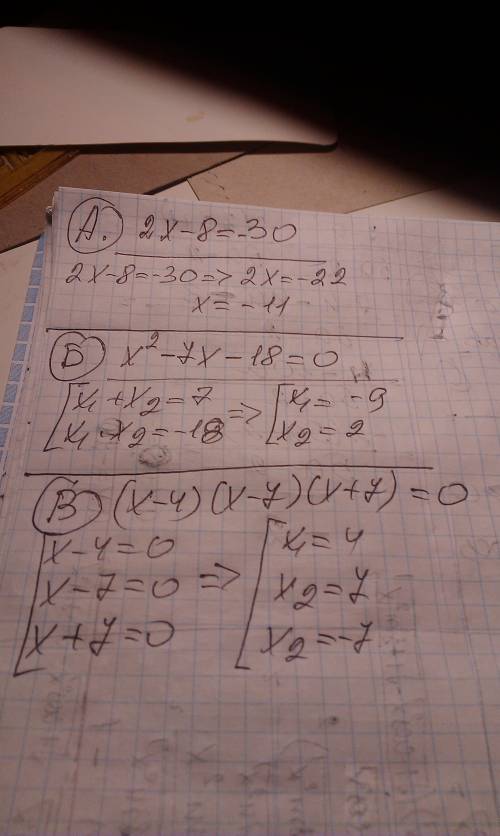 А. 2x-8=-30
2x-8=-30=> 2x=-22
x=-11
Б x²-7x-18=0
[x₁+x₂=7 => [x₁=-9
x₁·x₂=-18 x₂=2
В (x-4)(x-7)(x+7)=0
[x-4=0 [x₁=4
x-7=0 => x₂=7
x+7=0 x₂=-7